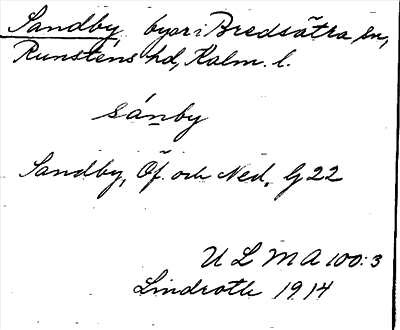 Sandby byar i Bredsätra sn,
Runstens hd, Kalm. l.
sánby
Sandby, Öf. och Ned. G 22
U L M A 100:3
Lindroth 1914